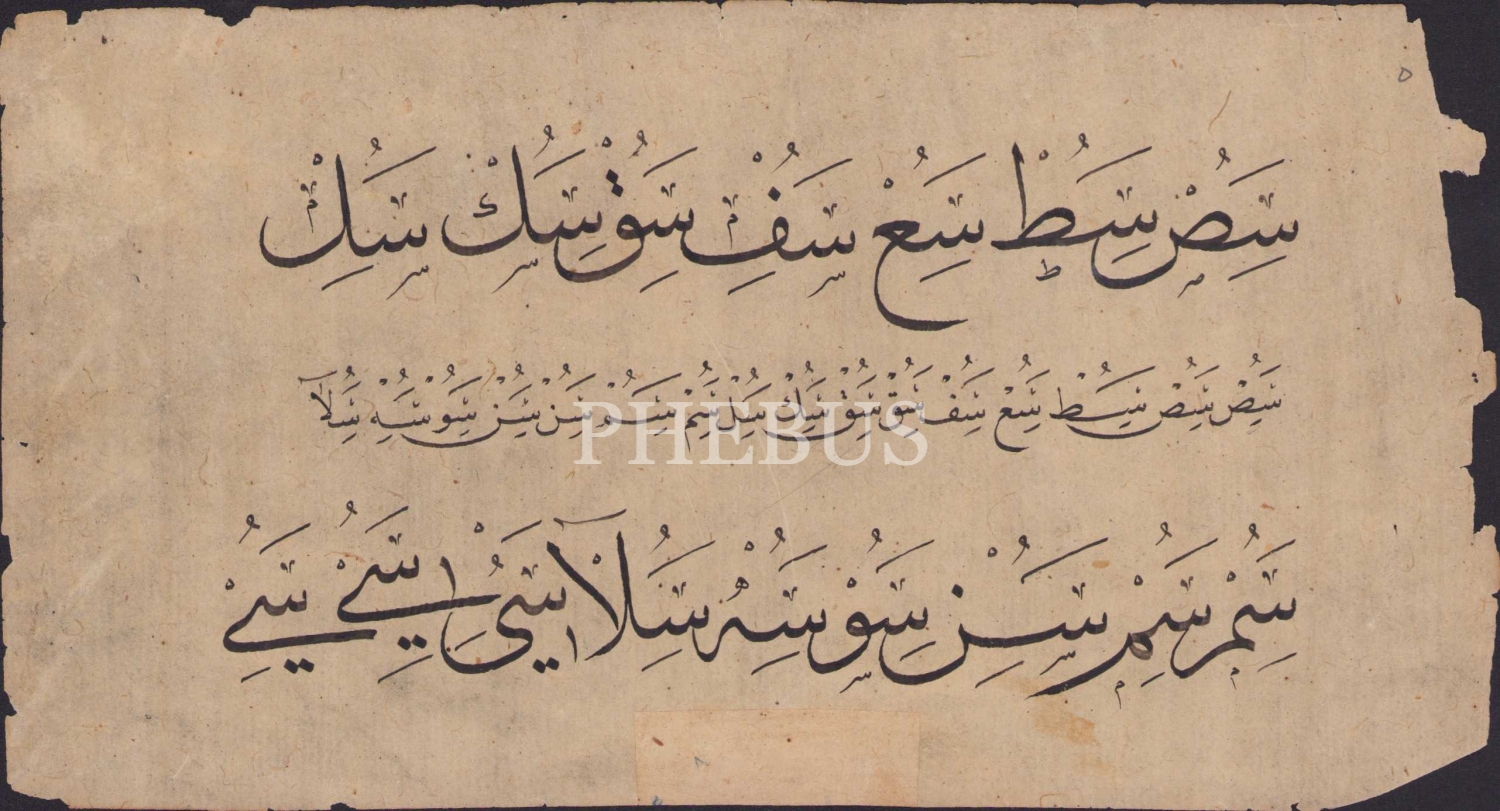 ٥
سص سط سع سف سق سك سل
سص سص سط سع سف سق سق سك سل سم سم سن سن سو سه سلا
PHEBUS
سم سم سن سو سه سلا سى سے سے